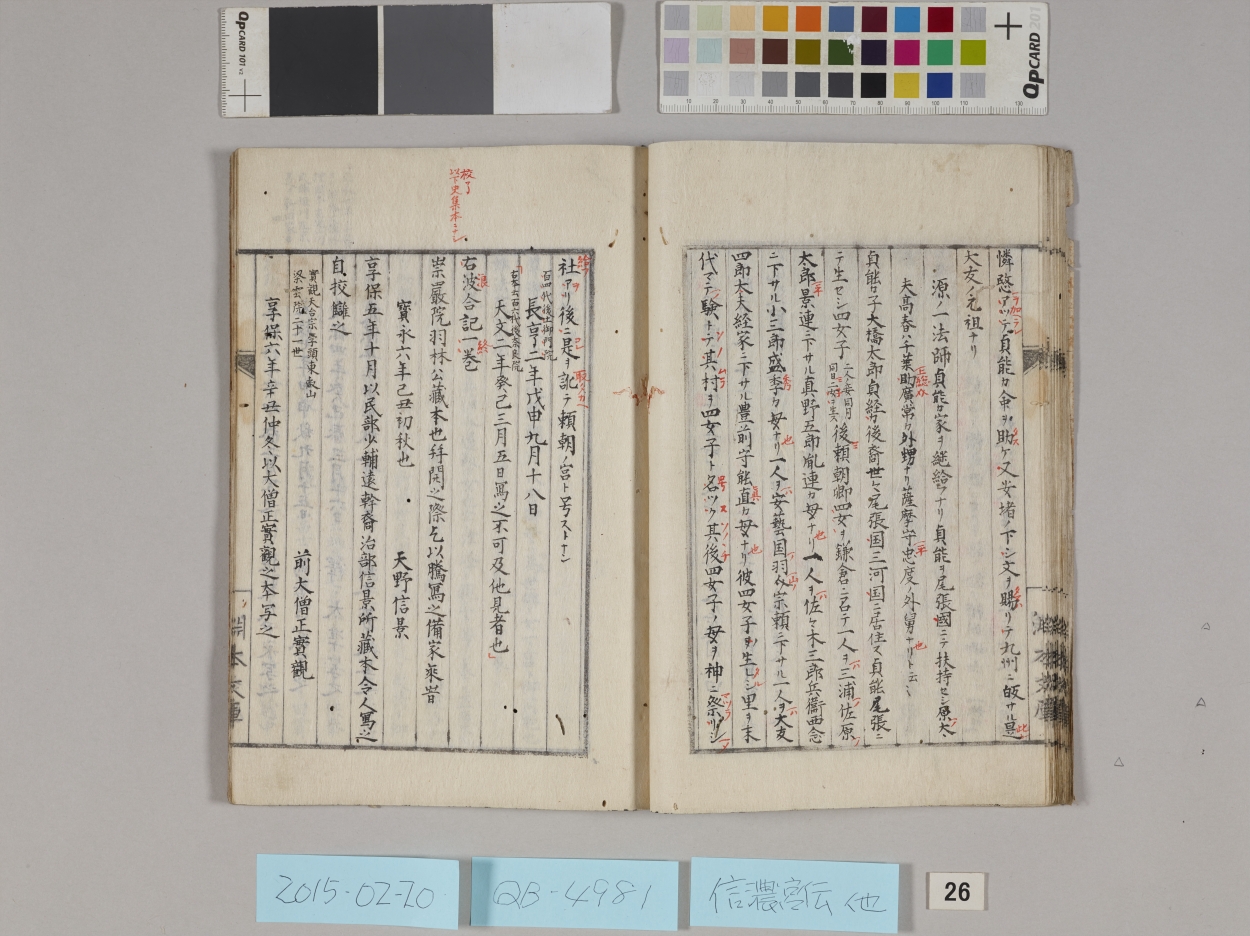 憐愍アツテ貞能カ命ヲ助ケ又安堵ノ下シ文ヲ賜リテ九州ニ皈サル是
大友ノ元祖ナリ
源ノ一法師貞能カ家ヲ継給フナリ貞能ヲ尾張國ニテ扶持セシ原大
夫高春ハ千葉助廣常カ外甥ナリ薩摩守忠度ノ外舅ナリト云
貞能カ子大橋太郎貞経カ後裔世々尾張国三河国ニ居住ス貞能尾張ニ
テ生セシ四女子
後頼朝卿四女ヲ鎌倉ニ召テ一人ヲ三浦佐原
太郎景連ニ下サル真野五郎胤連カ母ナリ一人ヲ佐々木三郎兵衞西念
ニ下サル小三郎盛季カ母ナリ一人ヲ安藝国羽山宗頼ニ下サル一人ヲ大友
四郎大夫経家ニ下サル豊前守能直カ母ナリ彼四女子ヲ生セシ里ヲ末
代マテ験トテ其村ヲ四女子ト名ツク其後四女子ノ母ヲ神ニ祭ツシ
社アリ後ニ是ヲ訛テ頼朝ノ宮ト号ストナン
百四代後土御門院
長享二年戊申九月十八日
百六代後奈良院
天文二年癸巳三月五日寫之不可及他見者也
校了
以下史集本ニナシ
右波合記一巻
崇嚴院羽林公藏本也拜閲之際乞以騰寫之備家乘者
寶永六年己丑初秋也
天野信景
享保五年十月以民部少輔遠幹裔治部信景所藏本令人寫之
自挍讎之
實観天台宗学頭東叡山
凌雲院二十一世
前大僧正實觀
享保六年辛丑仲冬以大僧正實觀之本写之
QPCARD 101
QPCARD 201
2015-02-20
QB-4981
信濃宮伝 他
26